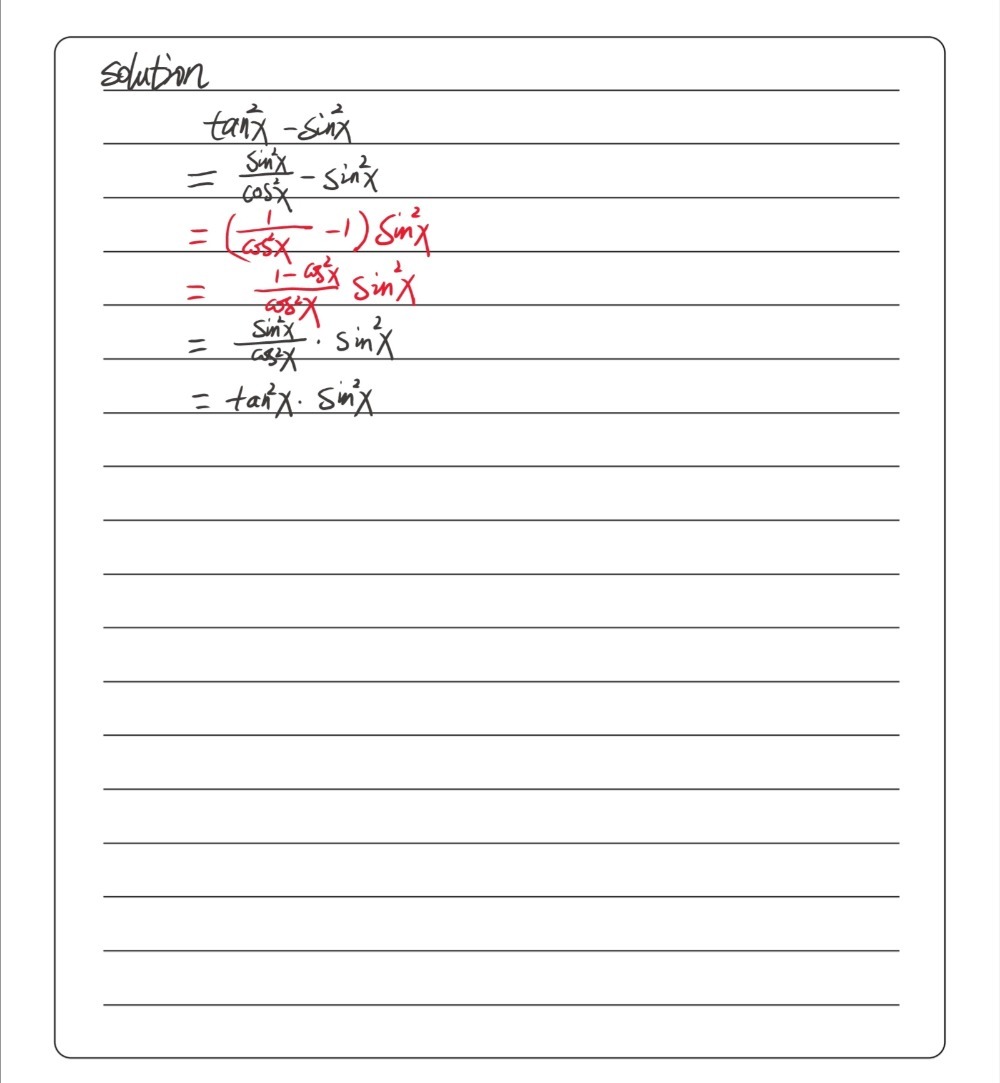 solution
tan²x - sin²x
= sin²x/cos²x - sin²x
= (1/cos²x - 1) sin²x
= (1 - cos²x)/cos²x sin²x
= sin²x/cos²x · sin²x
= tan²x · sin²x